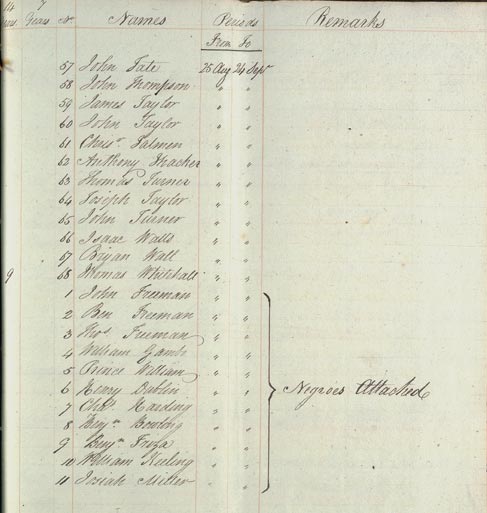 14 7
Years No Names Periods Remarks
From To
57 John Tate 25 Aug 24 Sepr
58 John Thompson " "
59 James Taylor " "
60 John Taylor " "
61 Chrisr Talmen " "
62 Anthony Thacker " "
63 Thomas Turner " "
64 Joseph Taylor " "
65 John Turner " "
66 Isaac Walls " "
67 Bryan Wall " "
9 68 Thomas Whitehall " "
1 John Freeman " "
2 Ben Freeman " "
3 Thos Freeman " "
4 William Gamble " "
5 Prince William " "
6 Henry Dublin " " Negroes Attached
7 Chas Harding " "
8 Benjn Bowling " "
9 Benjn " "
10 William Keeling " "
11 Josiah Miller " "